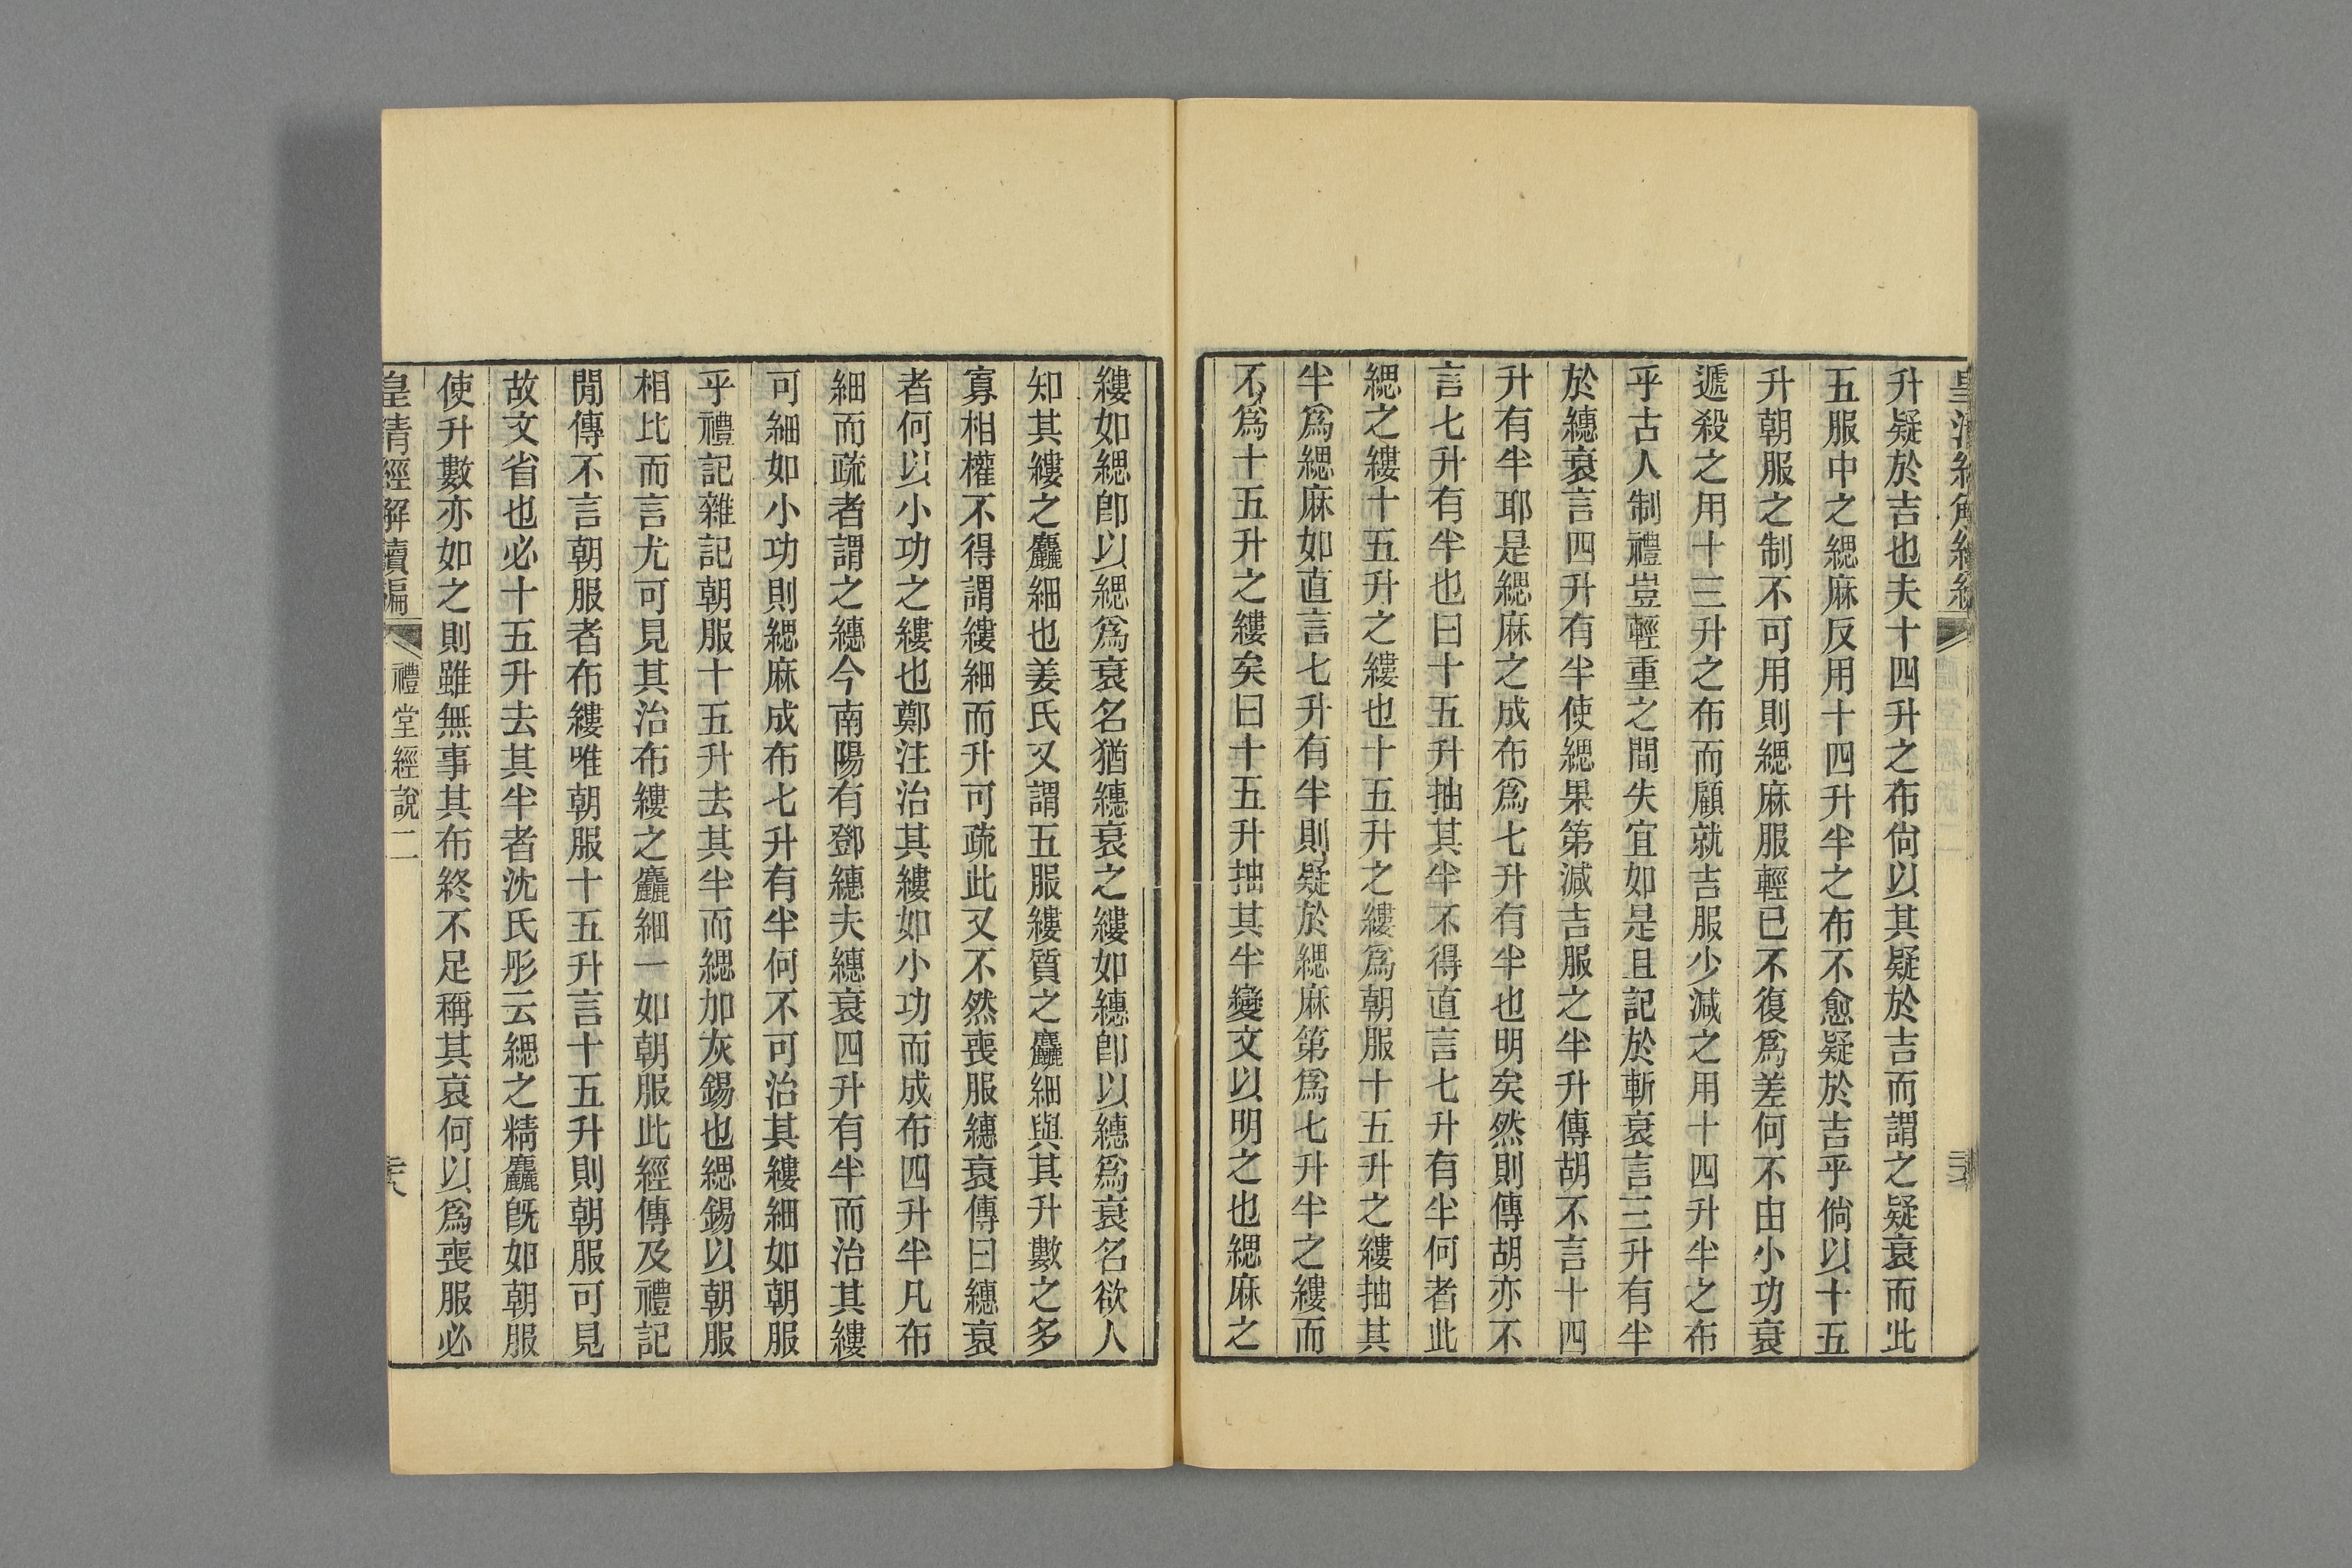 升疑於吉也夫十四升之布尙以其疑於吉而謂之疑衰而此
五服中之緦麻反用十四升半之布不愈疑於吉乎倘以十五
升朝服之制不可用則緦麻服輕已不復爲差何不由小功衰
遞殺之用十三升之布而顧就吉服少減之用十四升半之布
乎古人制禮豈輕重之間失宜如是且記於斬衰言三升有半
於繐衰言四升有半使緦果第減吉服之半升傳胡不言十四
升有半耶是緦麻之成布爲七升有半也明矣然則傳胡亦不
言七升有半也曰十五升抽其半不得直言七升有半何者此
緦之縷十五升之縷也十五升之縷爲朝服十五升之縷抽其
半爲緦麻如直言七升有半則疑於緦麻第爲七升半之縷而
不爲十五升之縷矣曰十五升抽其半變文以明之也緦麻之
縷如緦卽以緦爲衰名猶繐衰之縷如繐卽以繐爲衰名欲人
知其縷之麤細也姜氏又謂五服縷質之麤細與其升數之多
寡相權不得謂縷細而升可疏此又不然喪服繐衰傳曰繐衰
者何以小功之縷也鄭注治其縷如小功而成布四升半凡布
細而疏者謂之繐今南陽有鄧繐夫繐衰四升有半而治其縷
可細如小功則緦麻成布七升有半何不可治其縷細如朝服
乎禮記雜記朝服十五升去其半而緦加灰錫也緦錫以朝服
相比而言尤可見其治布縷之麤細一如朝服此經傳及禮記
閒傳不言朝服者布縷唯朝服十五升言十五升則朝服可見
故文省也必十五升去其半者沈氏彤云緦之精麤旣如朝服
使升數亦如之則雖無事其布終不足稱其哀何以爲喪服必
皇清經解續編
禮堂經說二